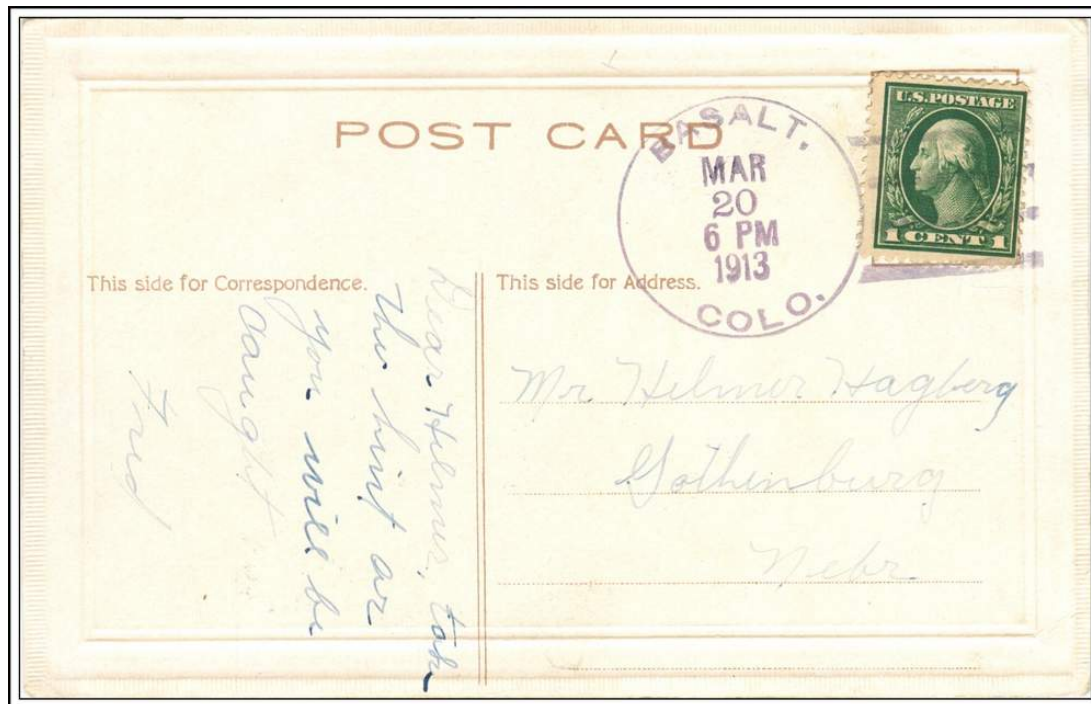 POST CARD
BASALT,
MAR
20
6 PM
1913
COLO.
U.S. POSTAGE
1 CENT 1
This side for Correspondence.
Dear Helmer, take
the hint or
you will be
caught
Fred
This side for Address.
Mr Helmer Hagberg
Gothenburg
Nebr